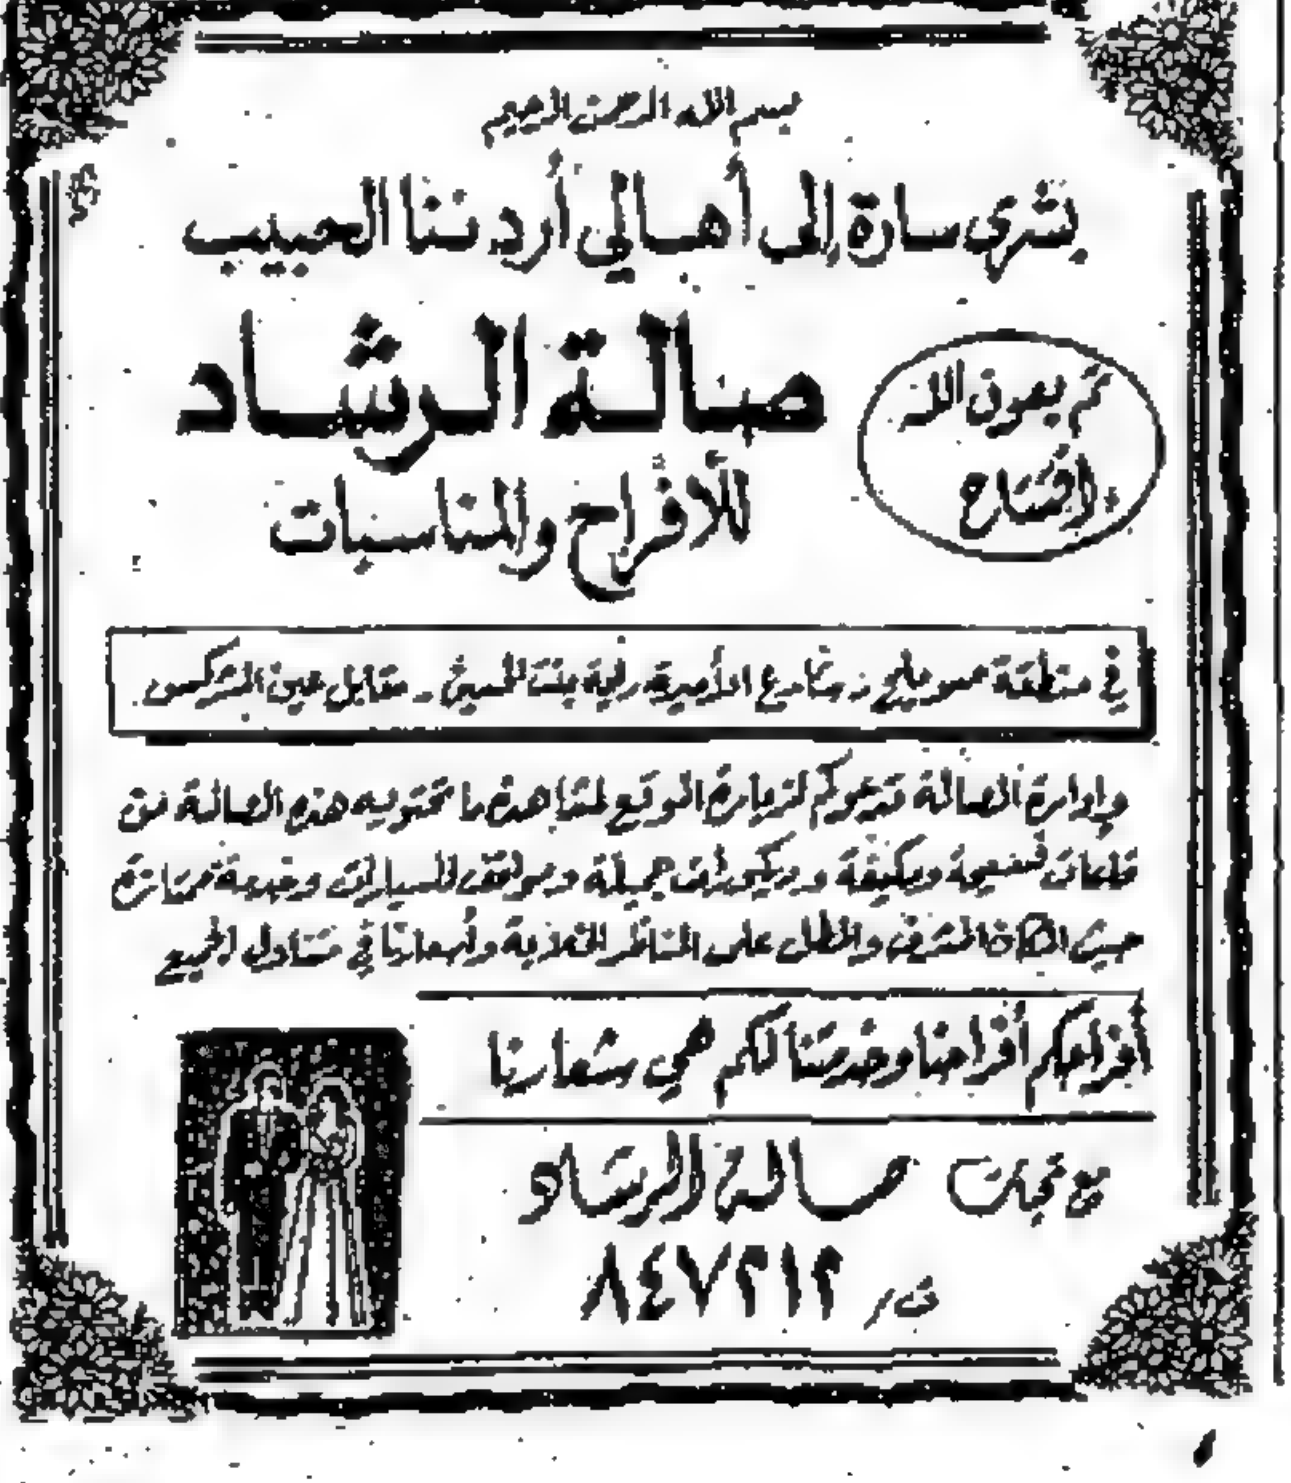 بسم الله الرحمن الرحيم
بشرى سارة إلى أهالي أردننا الحبيب
تم بعون الله
افتتاح
صالة الرشاد
للأفراح والمناسبات
في منطقة صويلح - شارع الأميرة راية بنت الحسين - مقابل عين الشركس
وإدارة الصالة تدعوكم لزيارة الموقع لمشاهدة ما تحتويه هذه الصالة من
قاعات فسيحة ومكيفة وديكورات جميلة ومواقف للسيارات وخدمة ممتازة
حيث المكان المشرف والمطل على المناظر الخلابة وأسعارنا في متناول الجميع
أفراحكم أفراحنا وخدمتنا لكم هي شعارنا
مع تحيات صالة الرشاد
ت/ ٨٤٧٢١٢